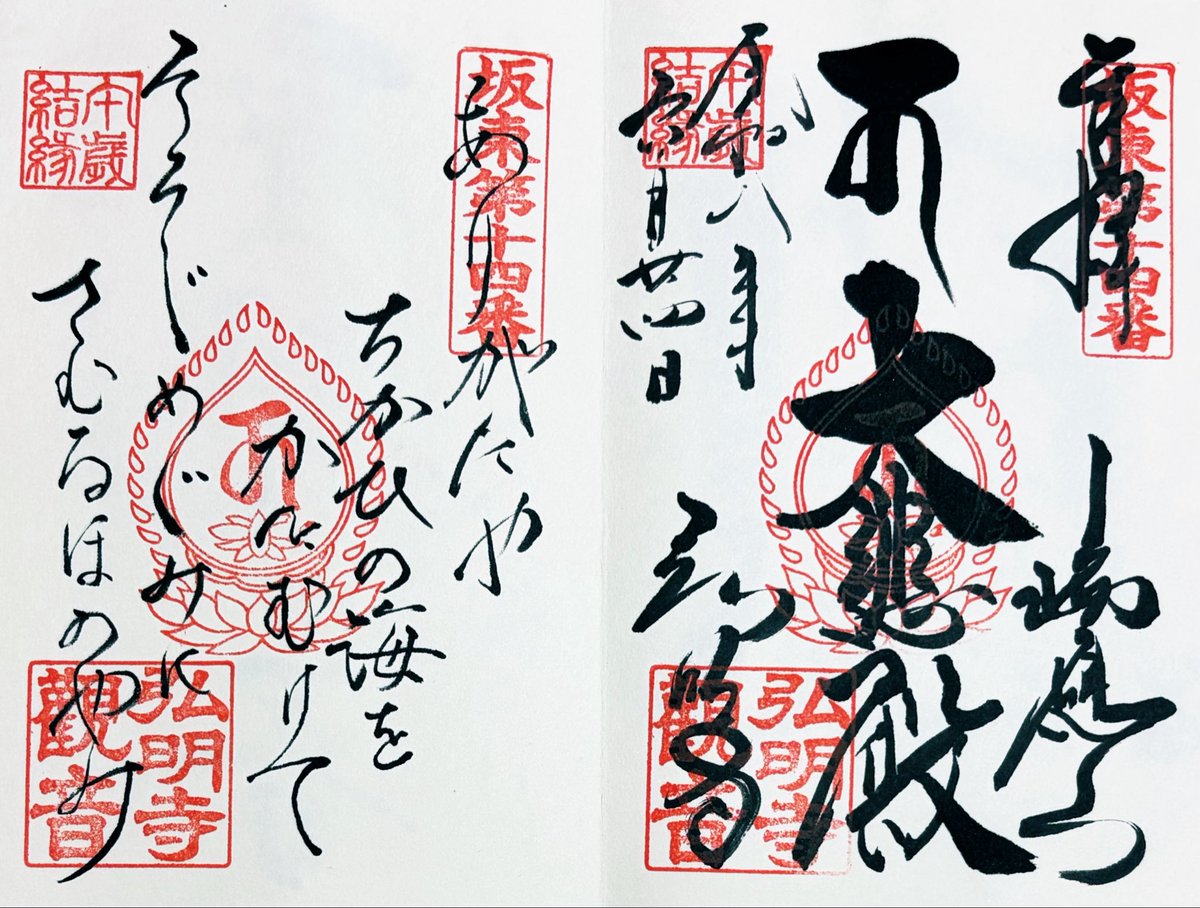 奉拝
坂東第十四番
瑞應山
大悲殿
本歳結縁
八年
月廿四日
弘明寺
弘明寺觀音
坂東第十四番
ありがたや
ちかひの海を
かたむけて
そそぐめぐみに
さむるほのやみ
本歳結縁
弘明寺觀音